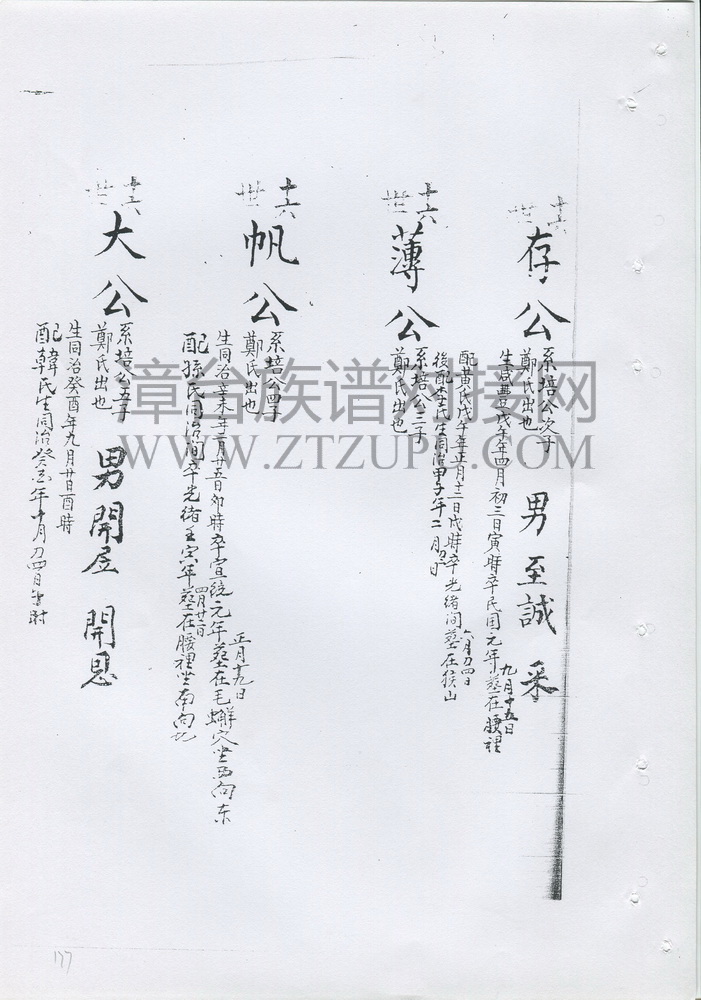 十六世
存公
系培公次子
鄭氏出也
男至誠 采
生咸豊戊午年四月初三日寅時卒民国元年九月十五日墓在腰裡
配黄氏戊午年正月十三日戌時卒光緒间六月初四日墓在猴山
後配李氏生同治甲子年二月初日
十六世
薄公
系培公三子
鄭氏出也
十六世
帆公
系培公四子
鄭氏出也
生同治辛未年二月廿五日卯時卒宣統元年正月十九日墓在毛蠏穴坐西向东
配孫氏同治间卒光绪壬寅年四月廿二日墓在腰裡坐南向北
十六世
大公
系培公五子
鄭氏出也
男開屋 開恩
生同治癸酉年九月廿日酉時
配韓氏生同治癸年十月初四日時
章台族谱对接网
WWW.ZTZUPU.COM
177